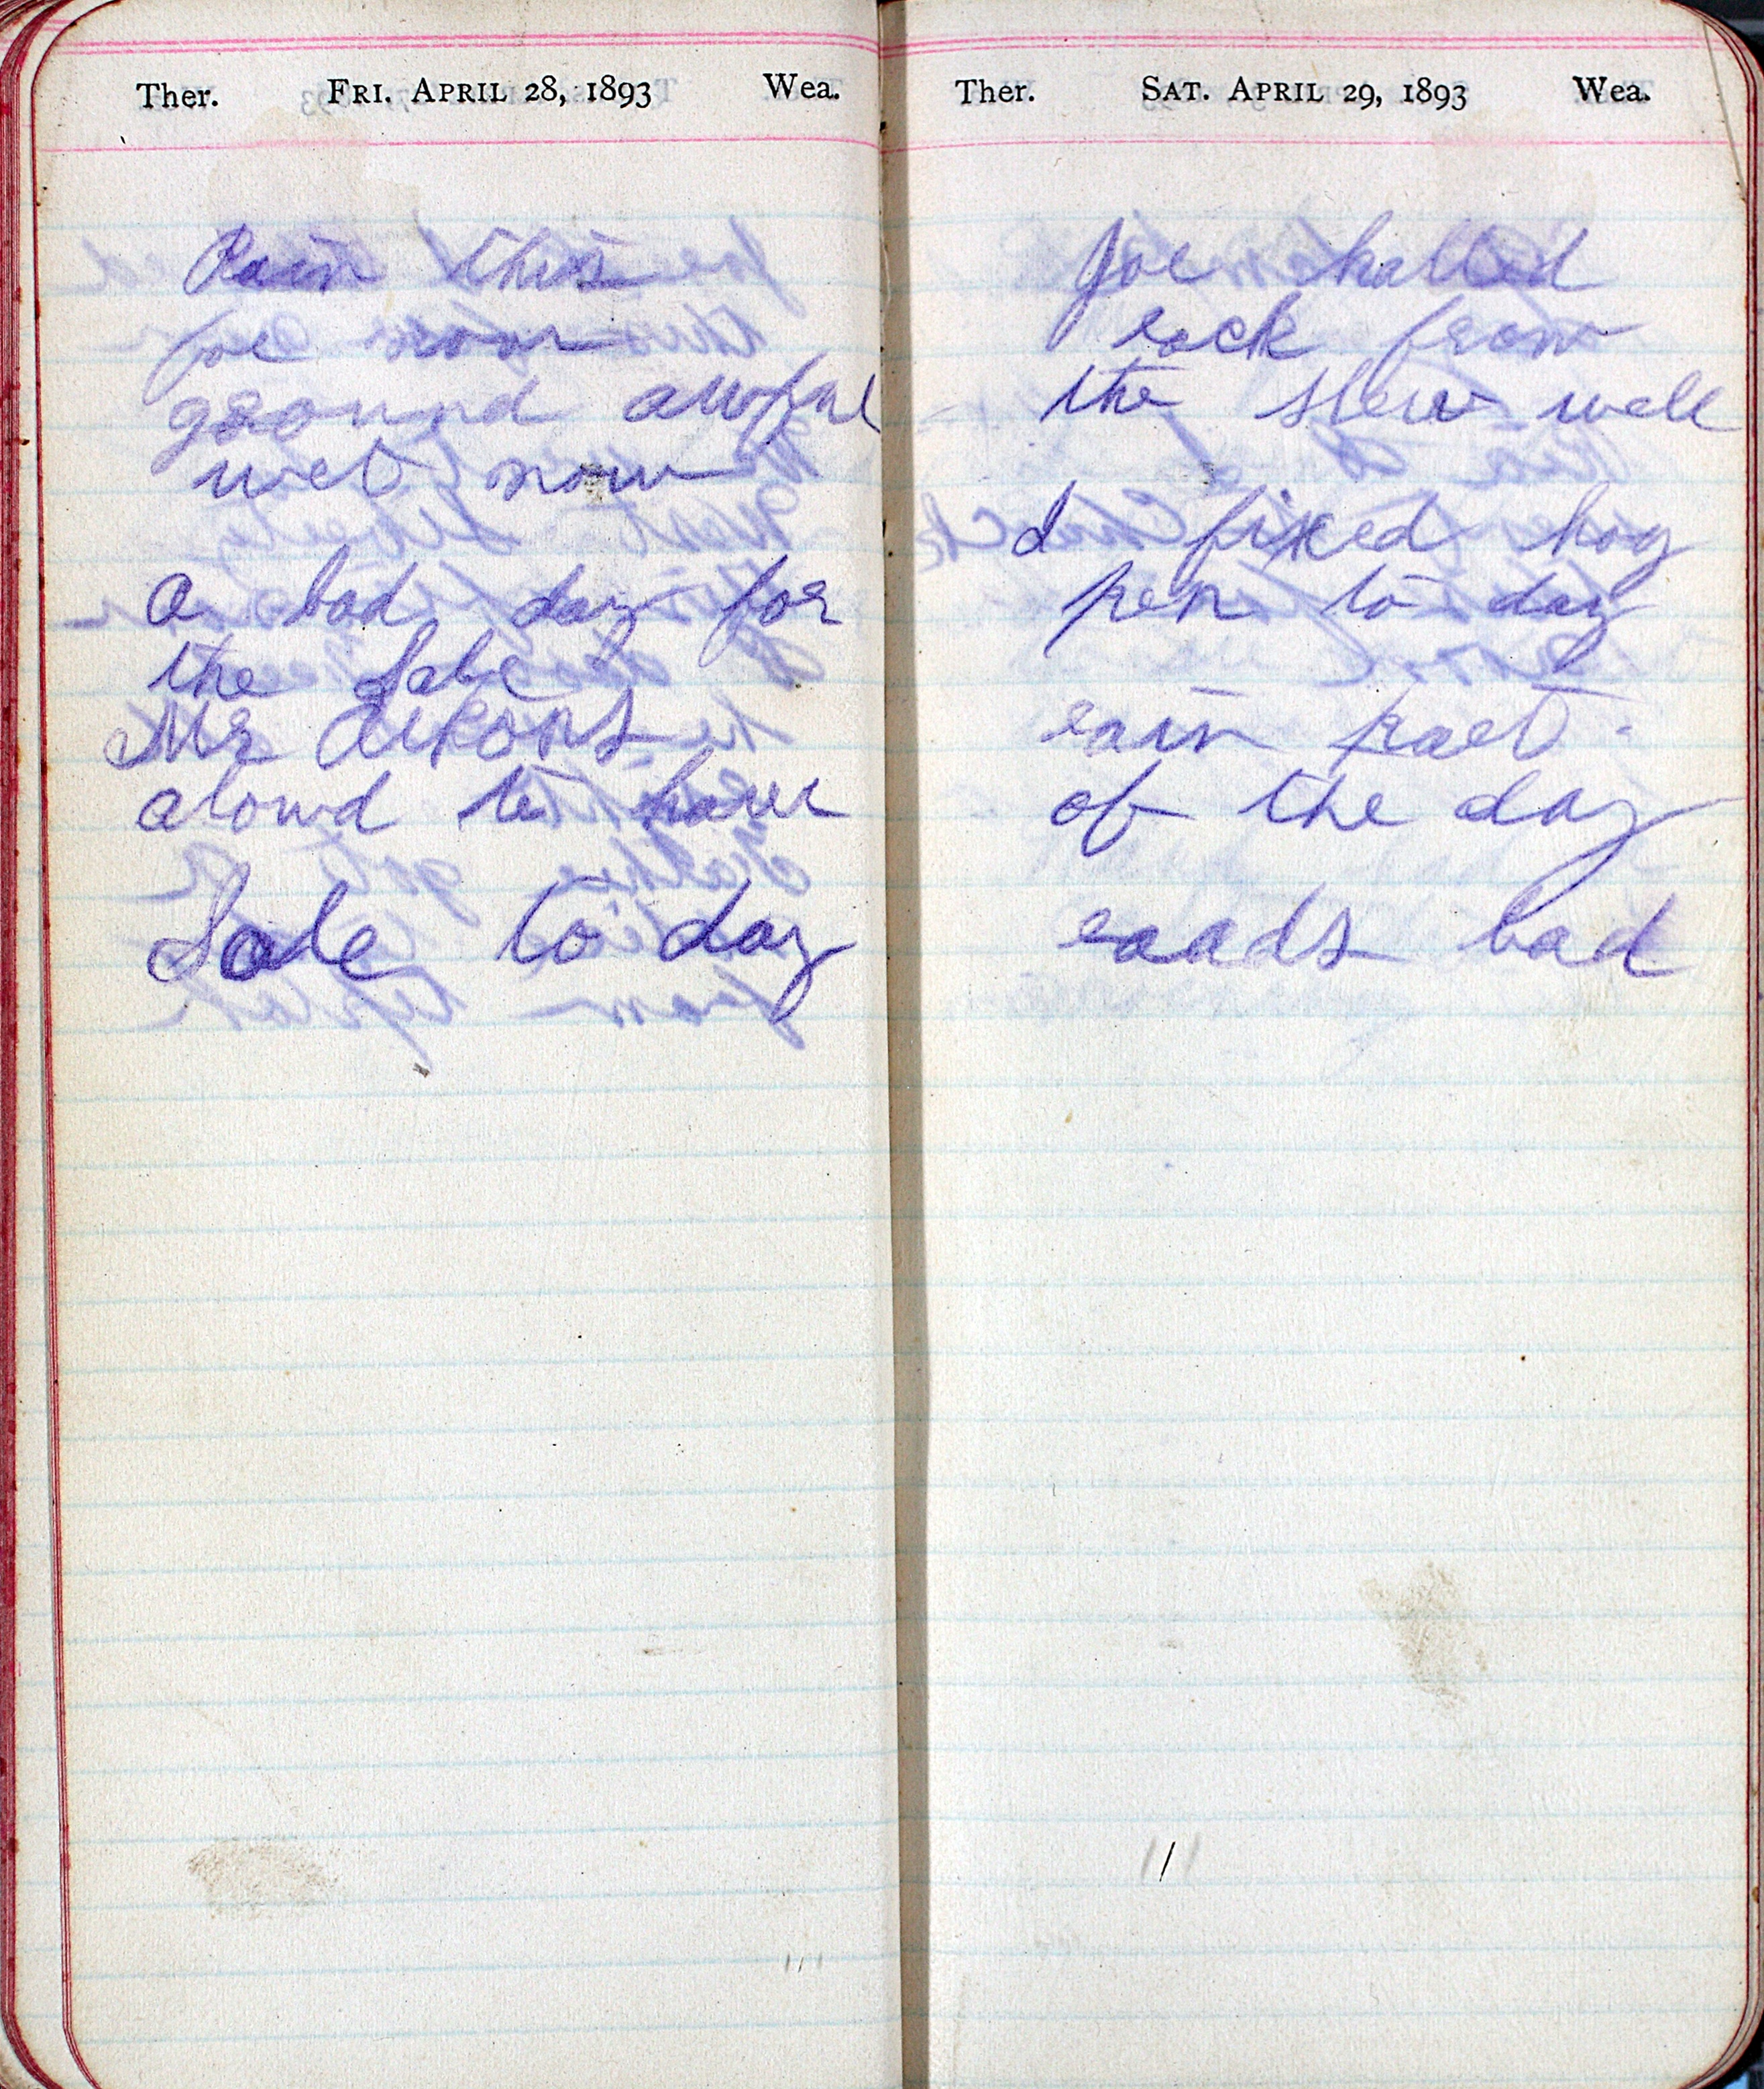 Ther. FRI. APRIL 28, 1893 Wea.
Rain this
foe noon
ground awful
wet now
a bad day for
the Sale
Mr
alowd to have
Sale to day
Ther. SAT. APRIL 29, 1893 Wea.
Joe halled
rock from
the slew well
I fixed hog
pen to day
rain part
of the day
roads bad